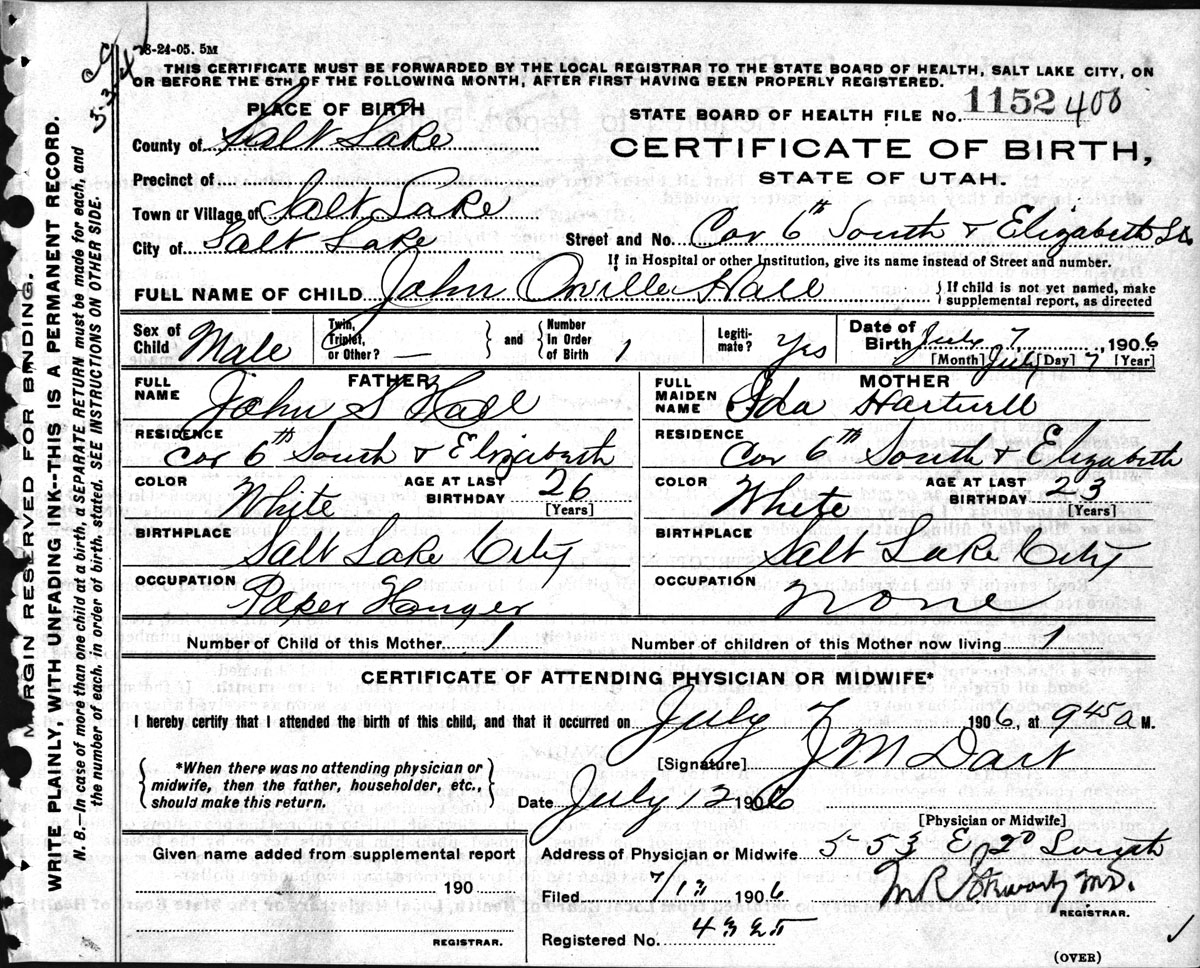 8-24-05. 5M
THIS CERTIFICATE MUST BE FORWARDED BY THE LOCAL REGISTRAR TO THE STATE BOARD OF HEALTH, SALT LAKE CITY, ON
OR BEFORE THE 5TH OF THE FOLLOWING MONTH, AFTER FIRST HAVING BEEN PROPERLY REGISTERED.
PLACE OF BIRTH
STATE BOARD OF HEALTH FILE No. 1152 408
County of Salt Lake
CERTIFICATE OF BIRTH,
STATE OF UTAH.
Precinct of
Town or Village of Salt Lake
City of Salt Lake
Street and No. Cor 6th South & Elizabeth Sts
If in Hospital or other Institution, give its name instead of Street and number.
FULL NAME OF CHILD John Orville Hall
{If child is not yet named, make
supplemental report, as directed
Sex of Child Male
Twin, Triplet, or Other? —
and
Number In Order of Birth 1
Legiti-mate? Yes
Date of Birth July 7, 1906
[Month] July [Day] 7 [Year]
FATHER
FULL NAME John S Hall
MOTHER
FULL MAIDEN NAME Ida Hartwell
RESIDENCE Cor 6th South & Elizabeth
RESIDENCE Cor 6th South & Elizabeth
COLOR White
AGE AT LAST BIRTHDAY 26 [Years]
COLOR White
AGE AT LAST BIRTHDAY 23 [Years]
BIRTHPLACE Salt Lake City
BIRTHPLACE Salt Lake City
OCCUPATION Paper Hanger
OCCUPATION none
Number of Child of this Mother 1
Number of children of this Mother now living 1
CERTIFICATE OF ATTENDING PHYSICIAN OR MIDWIFE*
I hereby certify that I attended the birth of this child, and that it occurred on July 7 1906, at 9 45 a M.
{*When there was no attending physician or
midwife, then the father, householder, etc.,
should make this return.}
[Signature] J M Dart
Date July 12 1906
[Physician or Midwife]
Given name added from supplemental report
190
REGISTRAR.
Address of Physician or Midwife 553 E 2d South
Filed 7/12 1906
REGISTRAR.
Registered No. 4325
(OVER)
MARGIN RESERVED FOR BINDING.
WRITE PLAINLY, WITH UNFADING INK--THIS IS A PERMANENT RECORD.
N. B.—In case of more than one child at a birth, a SEPARATE RETURN must be made for each, and
the number of each, in order of birth, stated. SEE INSTRUCTIONS ON OTHER SIDE.